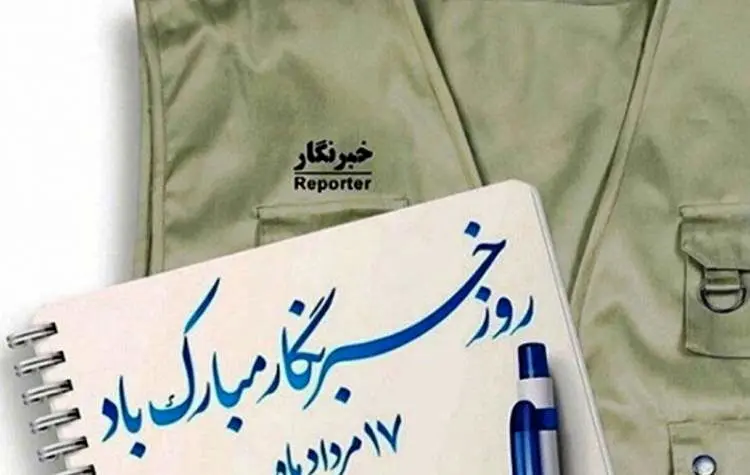 خبرنگار
Reporter
روز خبرنگار مبارک باد
۱۷ مرداد ماه